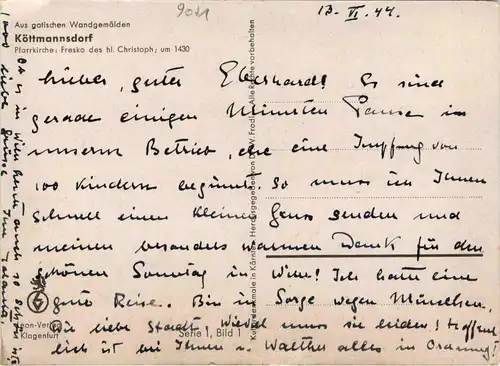 9011
13. VI. 44.
Aus gotischen Wandgemälden
Köttmannsdorf
Pfarrkirche: Fresko des hl. Christoph; um 1430
Lieber, guter Eberhard! Es sind
gerade einigen Minuten Pause in
unserem Betrieb, ehe eine Impfung von
100 Kindern beginnt. So muss ich Ihnen
schnell einen kleinen Gruss senden und
meinen besonders warmen Dank für den
schönen Sonntag in Wien! Ich hatte eine
gute Reise. Bin in Sorge wegen München.
Die liebe Stadt. Wieviel muss sie leiden! Hoffent
lich ist bei Ihnen u. Walther alles in Ordnung!
Ob es in Wien heute auch so
1000 liebe Grüsse Ihre
Leon-Verlag
Klagenfurt
Serie 1, Bild 1
Kunstdenkmale in Kärnten. Herausgegeben von Alle Rechte vorbehalten